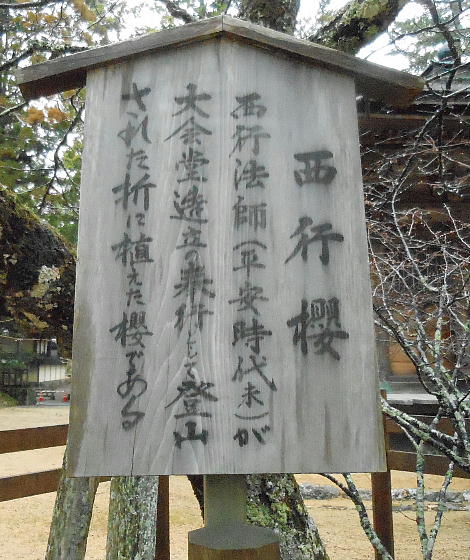 西行櫻
西行法師(平安時代末)が
大会堂造立の奉行として登山
された折に植えた櫻である